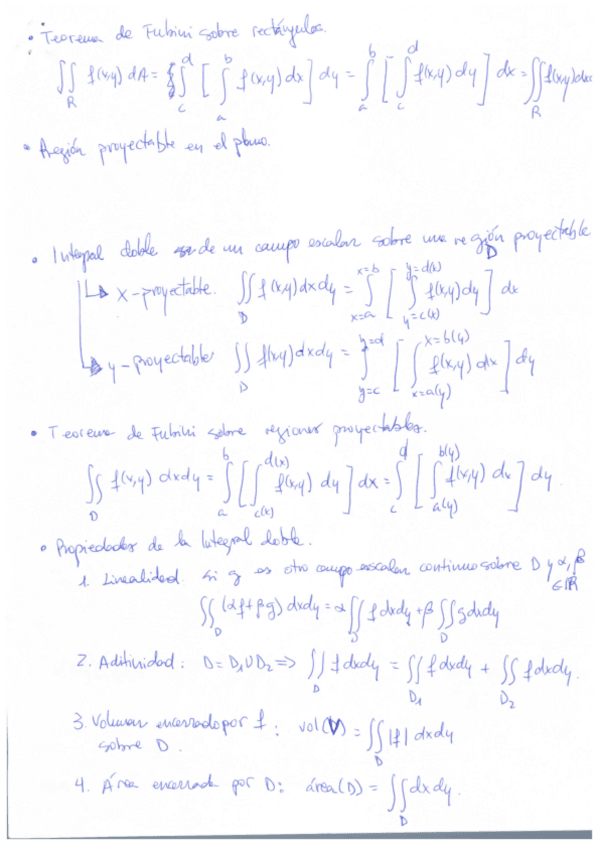 • Teorema de Fubini sobre rectángulos.
∬_R f(x,y) dA = ∫_c^d [ ∫_a^b f(x,y) dx ] dy = ∫_a^b [ ∫_c^d f(x,y) dy ] dx = ∬_R f(x,y) dx
• Región proyectable en el plano.
• Integral doble de un campo escalar sobre una región D proyectable
↳ x-proyectable. ∬_D f(x,y) dx dy = ∫_{x=a}^{x=b} [ ∫_{y=c(x)}^{y=d(x)} f(x,y) dy ] dx
↳ y-proyectable ∬_D f(x,y) dx dy = ∫_{y=c}^{y=d} [ ∫_{x=a(y)}^{x=b(y)} f(x,y) dx ] dy
• Teorema de Fubini sobre regiones proyectables.
∬_D f(x,y) dxdy = ∫_a^b [ ∫_{c(x)}^{d(x)} f(x,y) dy ] dx = ∫_c^d [ ∫_{a(y)}^{b(y)} f(x,y) dx ] dy.
• Propiedades de la Integral doble.
1. Linealidad. si g es otro campo escalar continuo sobre D y α, β ∈ ℝ
∬_D (αf+βg) dxdy = α ∬_D f dxdy + β ∬_D g dxdy
2. Aditividad: D = D₁ ∪ D₂ => ∬_D f dxdy = ∬_{D₁} f dxdy + ∬_{D₂} f dxdy.
3. Volumen encerrado por f: vol(V) = ∬_D |f| dxdy
sobre D.
4. Área encerrada por D: área(D) = ∬_D dxdy.